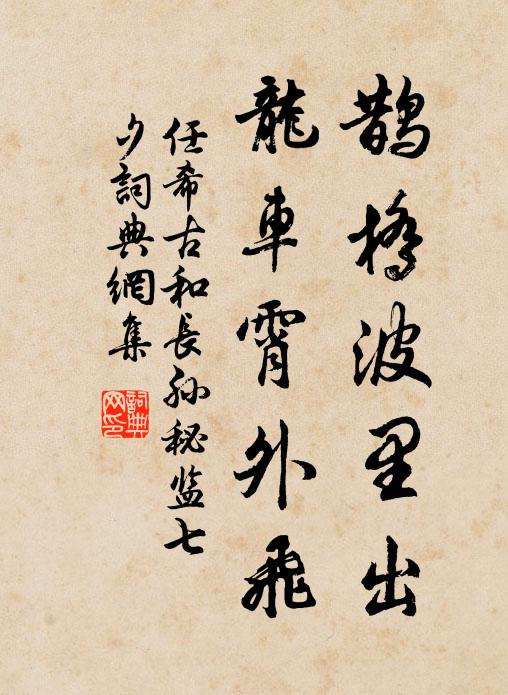 鹊橋波里出
龍車霄外飛
任希古和長孫秘监七
夕詞典網集
詞典
网印